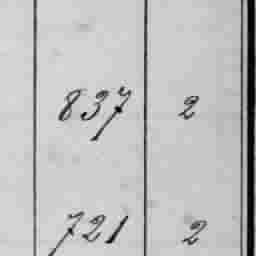 837 2
721 2